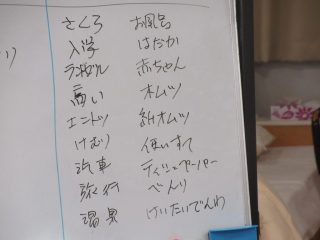 さくら
入学
ランドセル
高い
エントツ
けむり
汽車
旅行
温泉
お風呂
はだか
赤ちゃん
オムツ
紙オムツ
使いすて
ティシュペーパー
べんり
けいたいでんわ